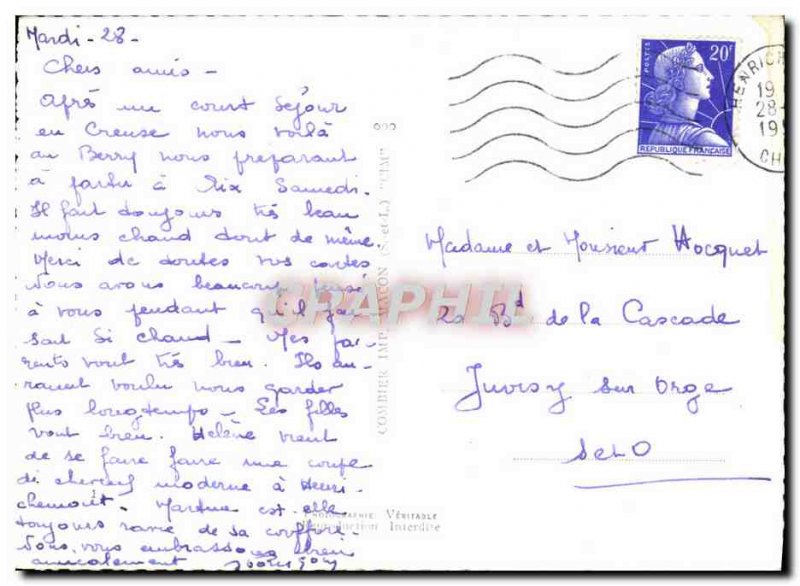 Mardi - 28 -
Chers amis -
après un court séjour
en Creuse nous voilà
au Berry nous préparant
à partir à Aix Samedi.
Il fait toujours très beau
moins chaud tout de même
Merci de toutes vos cartes
Nous avons beaucoup pensé
à vous pendant qu'il fai-
sait si chaud - Mes pa-
rents vont très bien. Ils au-
raient voulu nous garder
plus longtemps - Les filles
vont bien. Hélène vient
de se faire faire une coupe
de cheveux moderne à Henri-
chemont. Martine est elle
toujours ravie de sa
Nous vous embrassons bien
amicalement
COMBIER IMP. MACON (S.-et-L.) "CIAC"
CRAPHIL
POSTES
20F
REPUBLIQUE FRANÇAISE
HENRICH
19
28
19
CH
Madame et Monsieur Hocquet
20 Bd de la Cascade
Juvisy sur Orge
S et O
PHOTOGRAPHIE VÉRITABLE
Reproduction Interdite